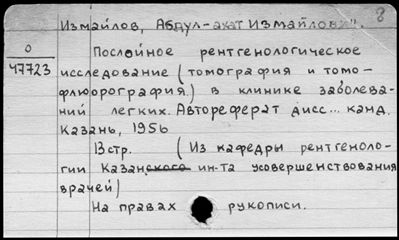 Измайлов, Абдул-ахат Измайлович.
8
0
47723
Послойное рентгенологическое
исследование (томография и томо-
флюорография) в клинике заболева-
ний легких. Автореферат дисс... канд.
Казань, 1956
В стр. (Из кафедры рентгеноло-
гии Казанского ин-та усовершенствования
врачей)
На правах рукописи.